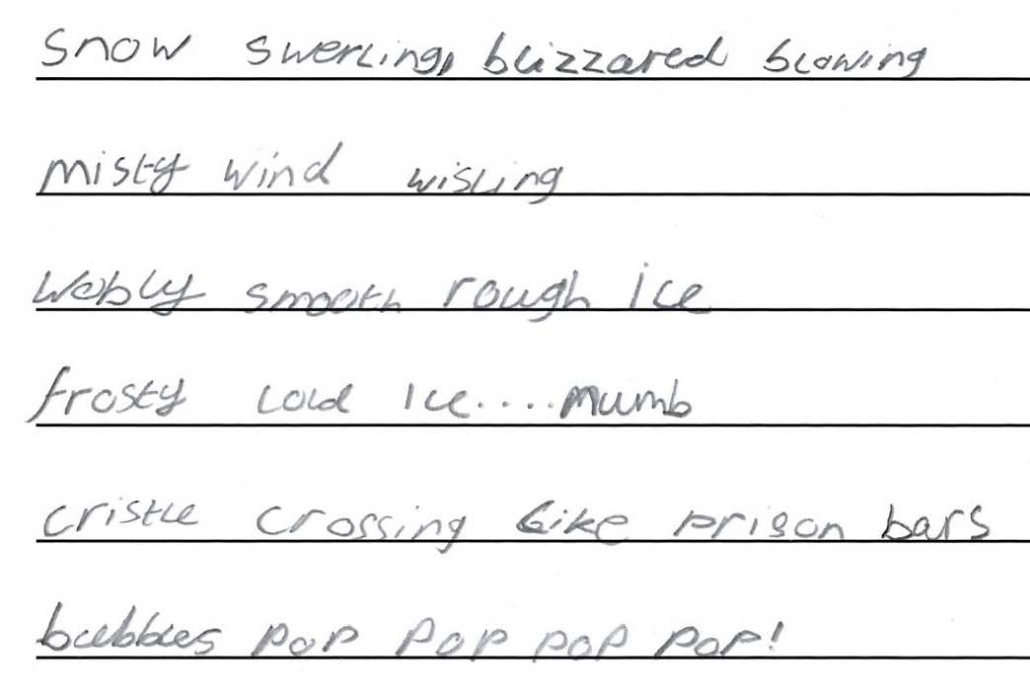 Snow swerling, blizzared blowing
misty wind wisling
Wobly smooth rough ice
frosty cold ice....mumb
cristle crossing like prison bars
bubbles pop pop pop pop!